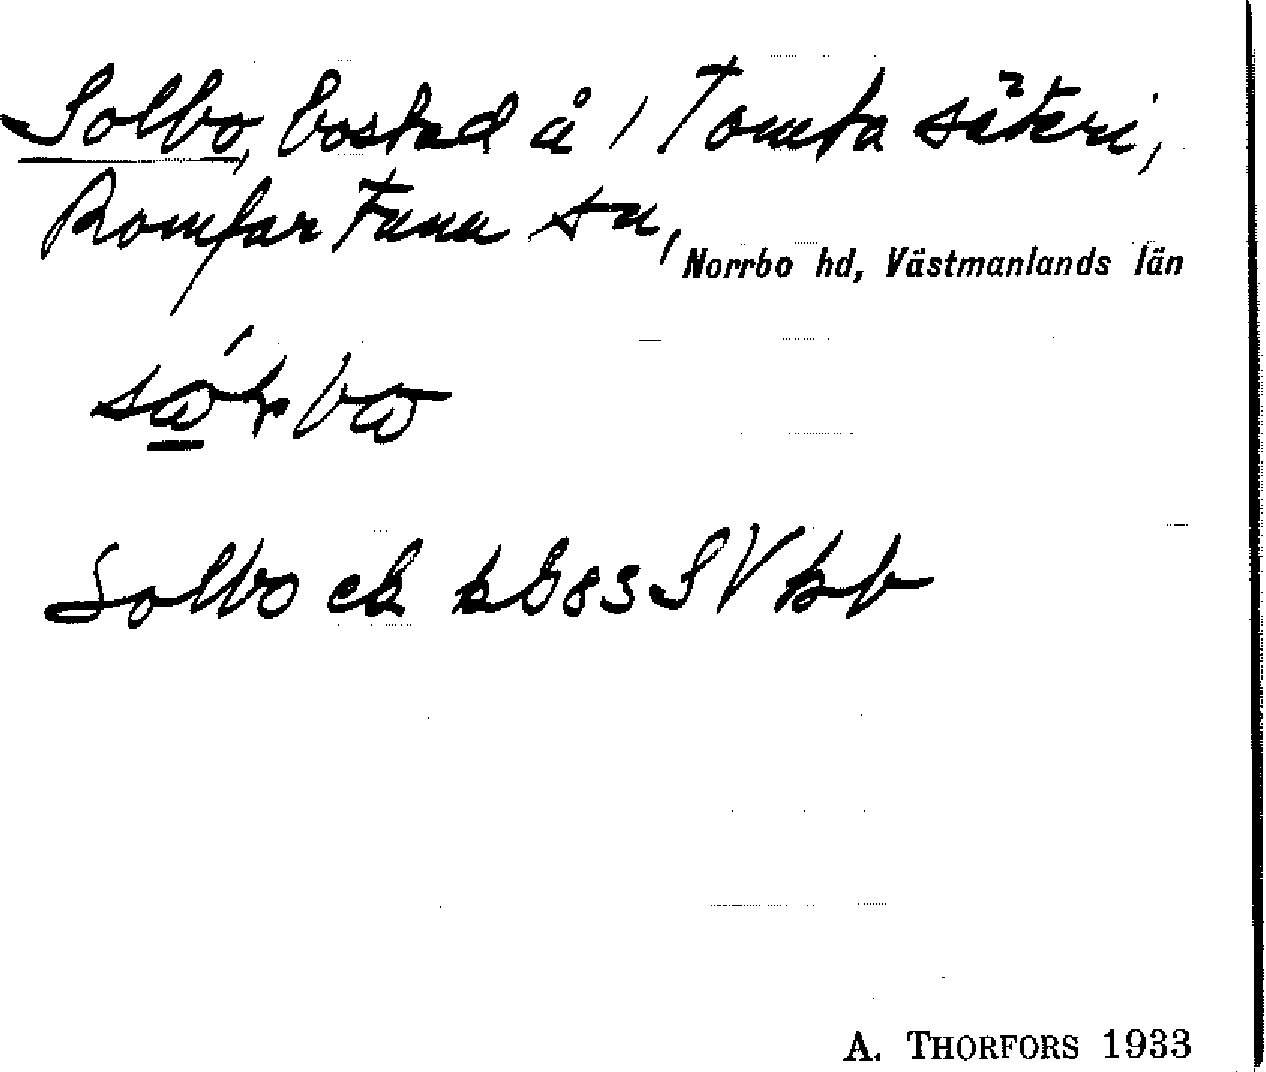 Solbo, bostad å 1 Tomta säteri,
Romfartuna sn,
Norrbo hd, Västmanlands län
Solbo ek
A. THORFORS 1933